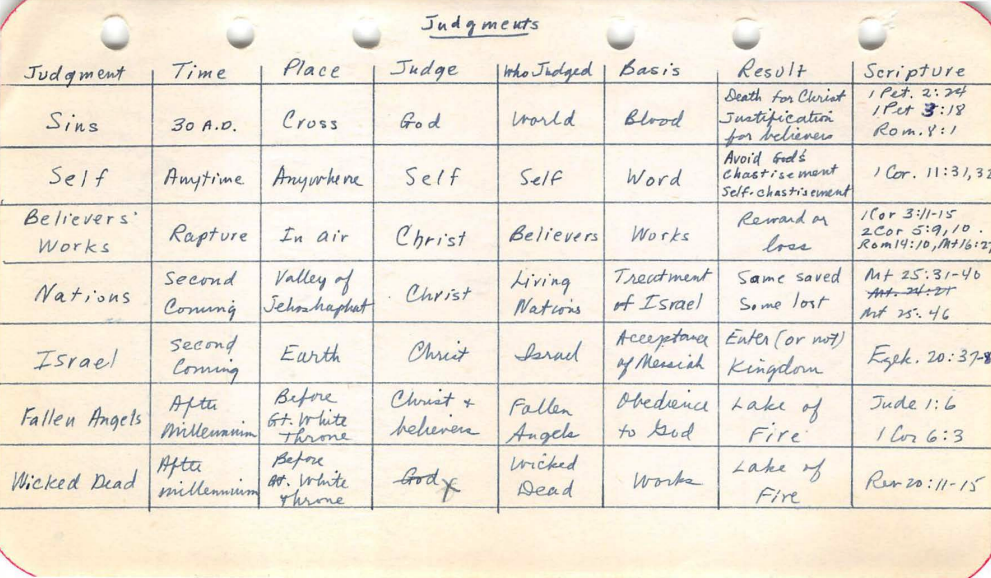 Judgments
Judgment Time Place Judge Who Judged Basis Result Scripture
Sins
30 A.D.
Cross
God
World
Blood
Death for Christ
Justification
for believers
1 Pet. 2:24
1 Pet 3:18
Rom. 8:1
Self
Anytime
Anywhere
Self
Self
Word
Avoid God's
Chastisement
Self-chastisement
1 Cor. 11:31,32
Believers'
Works
Rapture
In air
Christ
Believers
Works
Reward or
loss
1 Cor 3:11-15
2 Cor 5:9,10.
Rom 14:10, Mt 16:2
Nations
Second
Coming
Valley of
Jehoshaphat
Christ
Living
Nations
Treatment
of Israel
Some saved
Some lost
Mt 25:31-40
Mt 25:46
Israel
Second
Coming
Earth
Christ
Israel
Acceptance
of Messiah
Enter (or not)
Kingdom
Ezek. 20:37-
Fallen Angels
After
Millennium
Before
Gt. White
Throne
Christ +
believers
Fallen
Angels
Obedience
to God
Lake of
Fire
Jude 1:6
1 Cor 6:3
Wicked Dead
After
millennium
Before
Gt. White
Throne
God X
Wicked
Dead
Works
Lake of
Fire
Rev 20:11-15